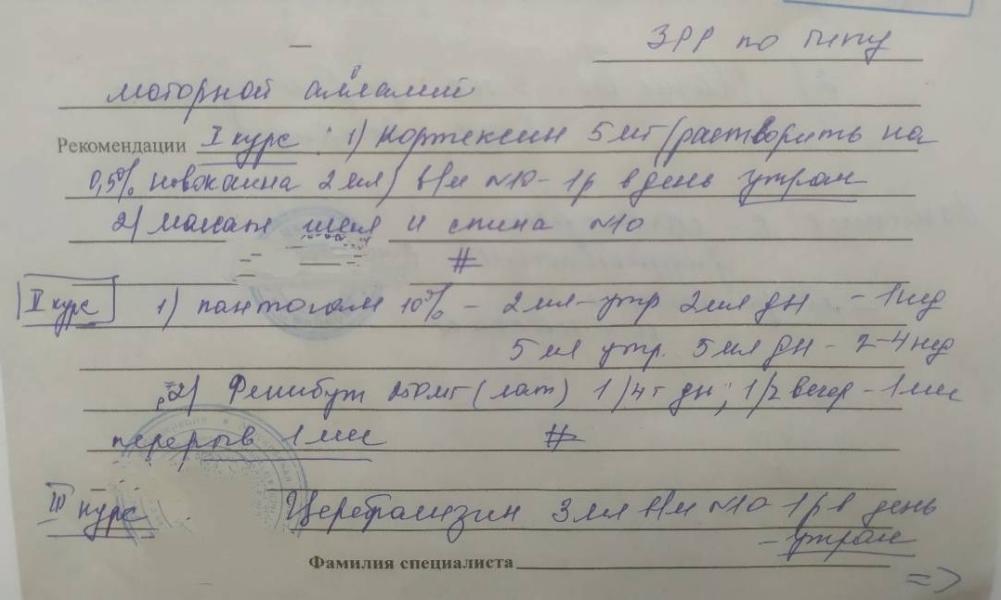 ЗРР по типу
моторной алалии
Рекомендации I курс : 1) Кортексин 5 мг (растворить на
0,5% новокаина 2 мл) в/м №10 - 1 р в день утром
2) массаж шея и спина №10
#
II курс 1) пантогам 10% - 2 мл - утр 2 мл дн - 1 нед
5 мл утр. 5 мл дн - 2-4 нед
2) Фенибут 250 мг (лат) 1/4 т дн; 1/2 вечер - 1 мес
перерыв 1 мес #
III курс Церебролизин 3 мл в/м №10 1 р в день
- утром
Фамилия специалиста
=>